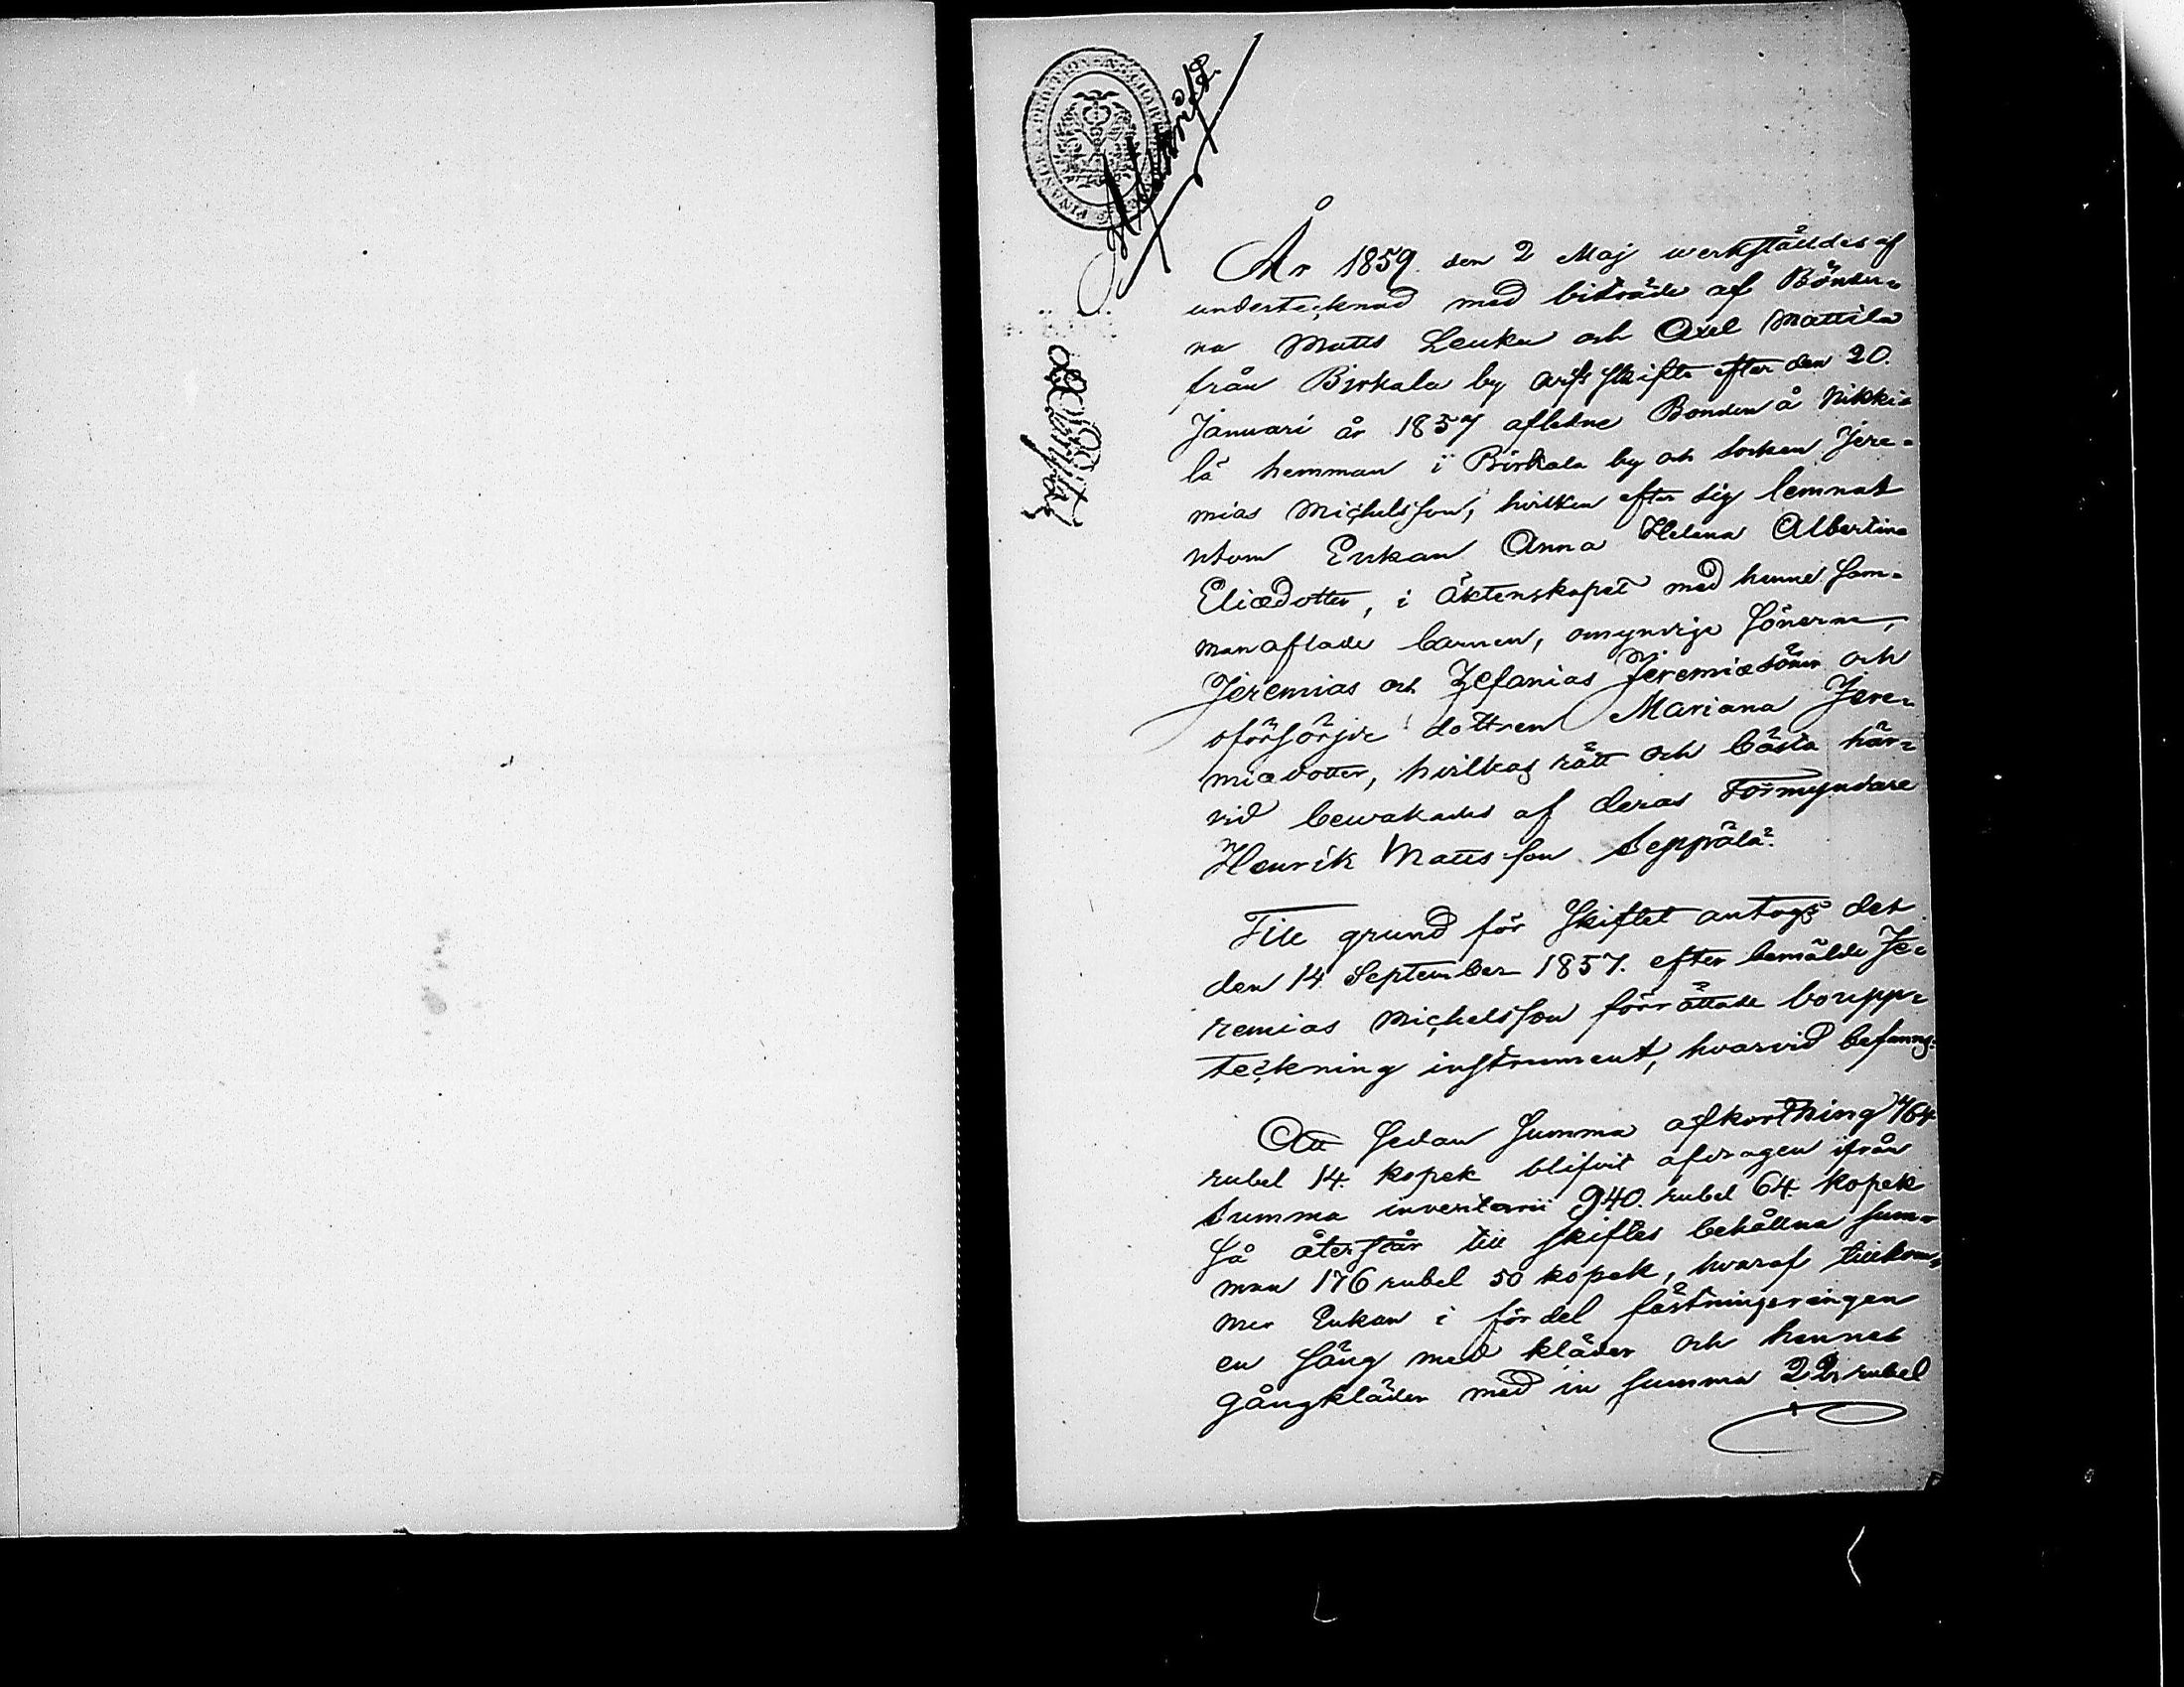 Afskrift
År 1859 den 2 Maj werkställdes af
undertecknad med biträde af Bönder=
na Matts Leuku och Axel Mattila
från Birkala by arfs skifte efter den 20.
Januari år 1857 aflidne Bonden å Nikki=
lä hemman i Birkala by och socken Jere=
mias Michelsson, hvilken efter sig lemnat
utom Enkan Anna Helena Albertina
Eliædotter, i äktenskapet med henne sam=
manaflade barnen, omyndige Sönerne,
Jeremias och Zefanias Jeremiæsöner och
oförsörjde dottren Mariana Jere=
miædotter, hvilkas rätt och bästa här=
vid bewakades af deras Förmyndare
Henrik Matts son Seppälä.
Till grund för Skiftet antogs det
den 14 September 1857. efter bemälde Je=
remias Michelsson förrättade boupp=
teckning instrument, hvarvid befanns:
Att sedan Summa afkortning 764
rubel 14. kopek blifvit afdragen ifrån
Summa inventarii 940. rubel 64. kopek
så återstår till skiftes behållna sum=
man 176 rubel 50 kopek, hvaraf tillkom=
mer Enkan i fördel fästningsringen
en säng med kläder och hennes
gångkläder med in summa 22 rubel